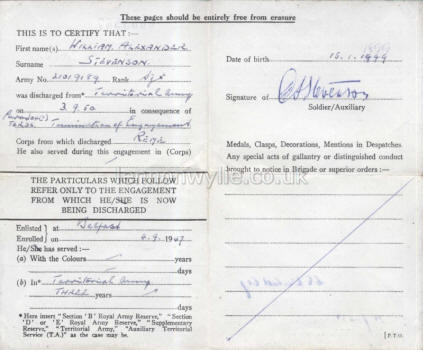 These pages should be entirely free from erasure
THIS IS TO CERTIFY THAT :—
First name(s) WILLIAM. ALEXANDER
Surname STEVENSON.
Army No. 21019189 Rank Sgt
was discharged from* Territorial Army
on 3.9.50 in consequence of
Termination of Engagement
Corps from which discharged REME
He also served during this engagement in (Corps)
THE PARTICULARS WHICH FOLLOW
REFER ONLY TO THE ENGAGEMENT
FROM WHICH HE/SHE IS NOW
BEING DISCHARGED
Enlisted } at Belfast
Enrolled } on 4.9. 1947
He/She has served :—
(a) With the Colours years
days
(b) In* Territorial Army
THREE years
days
* Here insert "Section 'B' Royal Army Reserve," "Section
'D' or 'E' Royal Army Reserve," "Supplementary
Reserve," "Territorial Army," "Auxiliary Territorial
Service (T.A.)" as the case may be.
Date of birth 15.1.1999
Signature of
Soldier/Auxiliary
Medals, Clasps, Decorations, Mentions in Despatches
Any special acts of gallantry or distinguished conduct
brought to notice in Brigade or superior orders :—
[P.T.O.